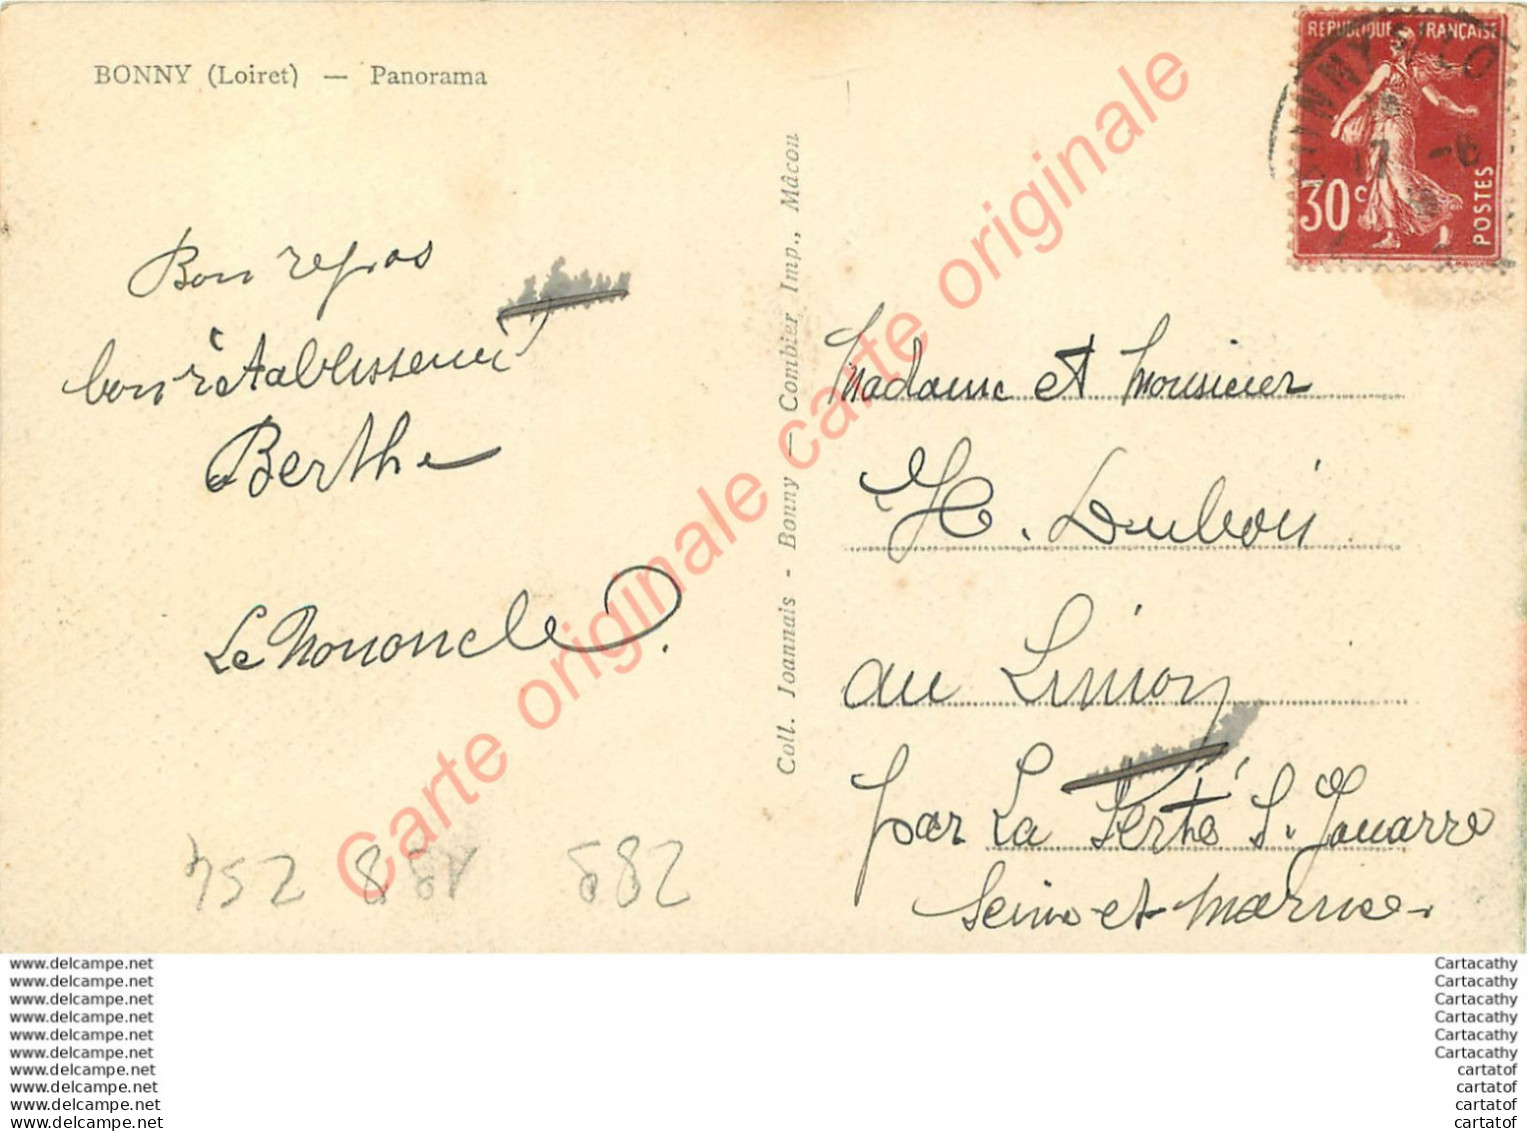 BONNY (Loiret) — Panorama
Bon repos
bon rétablissement
Berthe
Le Nononcle.
Coll. Joannais - Bonny — Combier Imp., Mâcon
REPUBLIQUE FRANÇAISE
30c
POSTES
17 -6
Madame et Monsieur
H. Dubois
au Limon
par La Ferté s. Jouarre
Seine et Marne
452 8 582
Carte originale carte originale carte originale
www.delcampe.net
www.delcampe.net
www.delcampe.net
www.delcampe.net
www.delcampe.net
www.delcampe.net
www.delcampe.net
www.delcampe.net
www.delcampe.net
www.delcampe.net
Cartacathy
Cartacathy
Cartacathy
Cartacathy
Cartacathy
Cartacathy
cartatof
cartatof
cartatof
cartatof